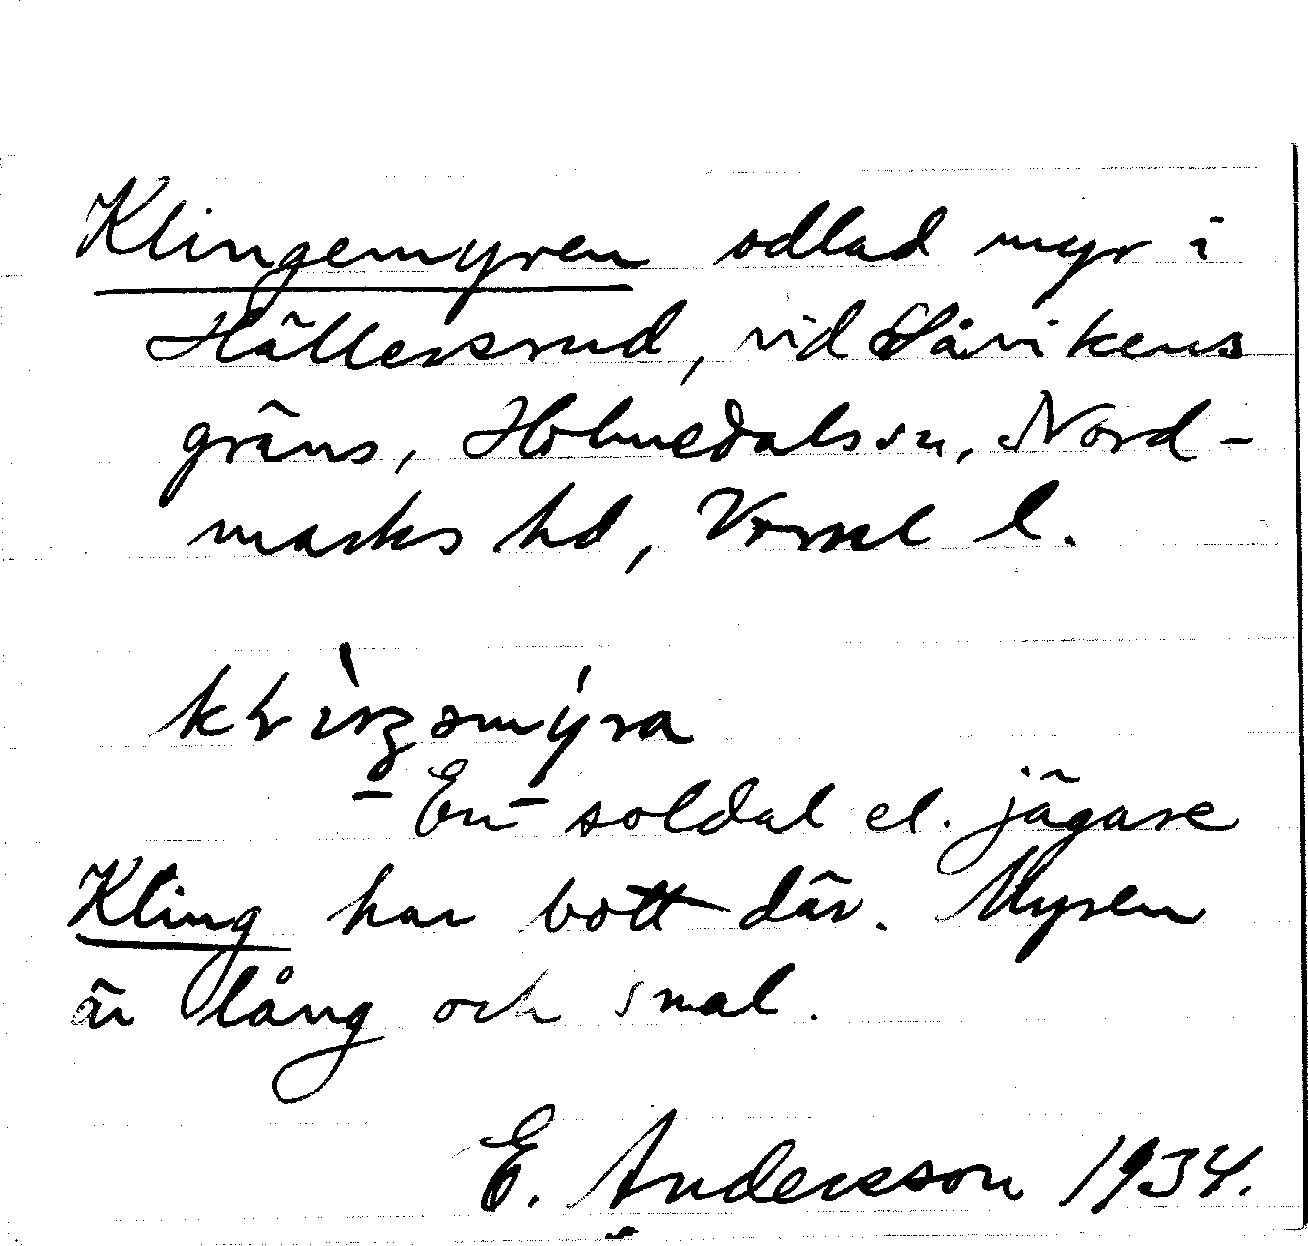 Klingemyren odlad myr i
Hällersrud, vid Håvikens
gräns, Holmedals sn, Nord-
marks hd, Vrml l.
En soldat el. jägare
Kling har bott där. Myren
är lång och smal.
E. Andersson 1934.